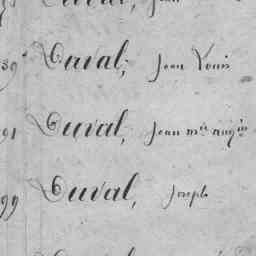 39 Duval, Jean Louis
91 Duval, Jean m.ie aug.in
99 Duval, Joseph